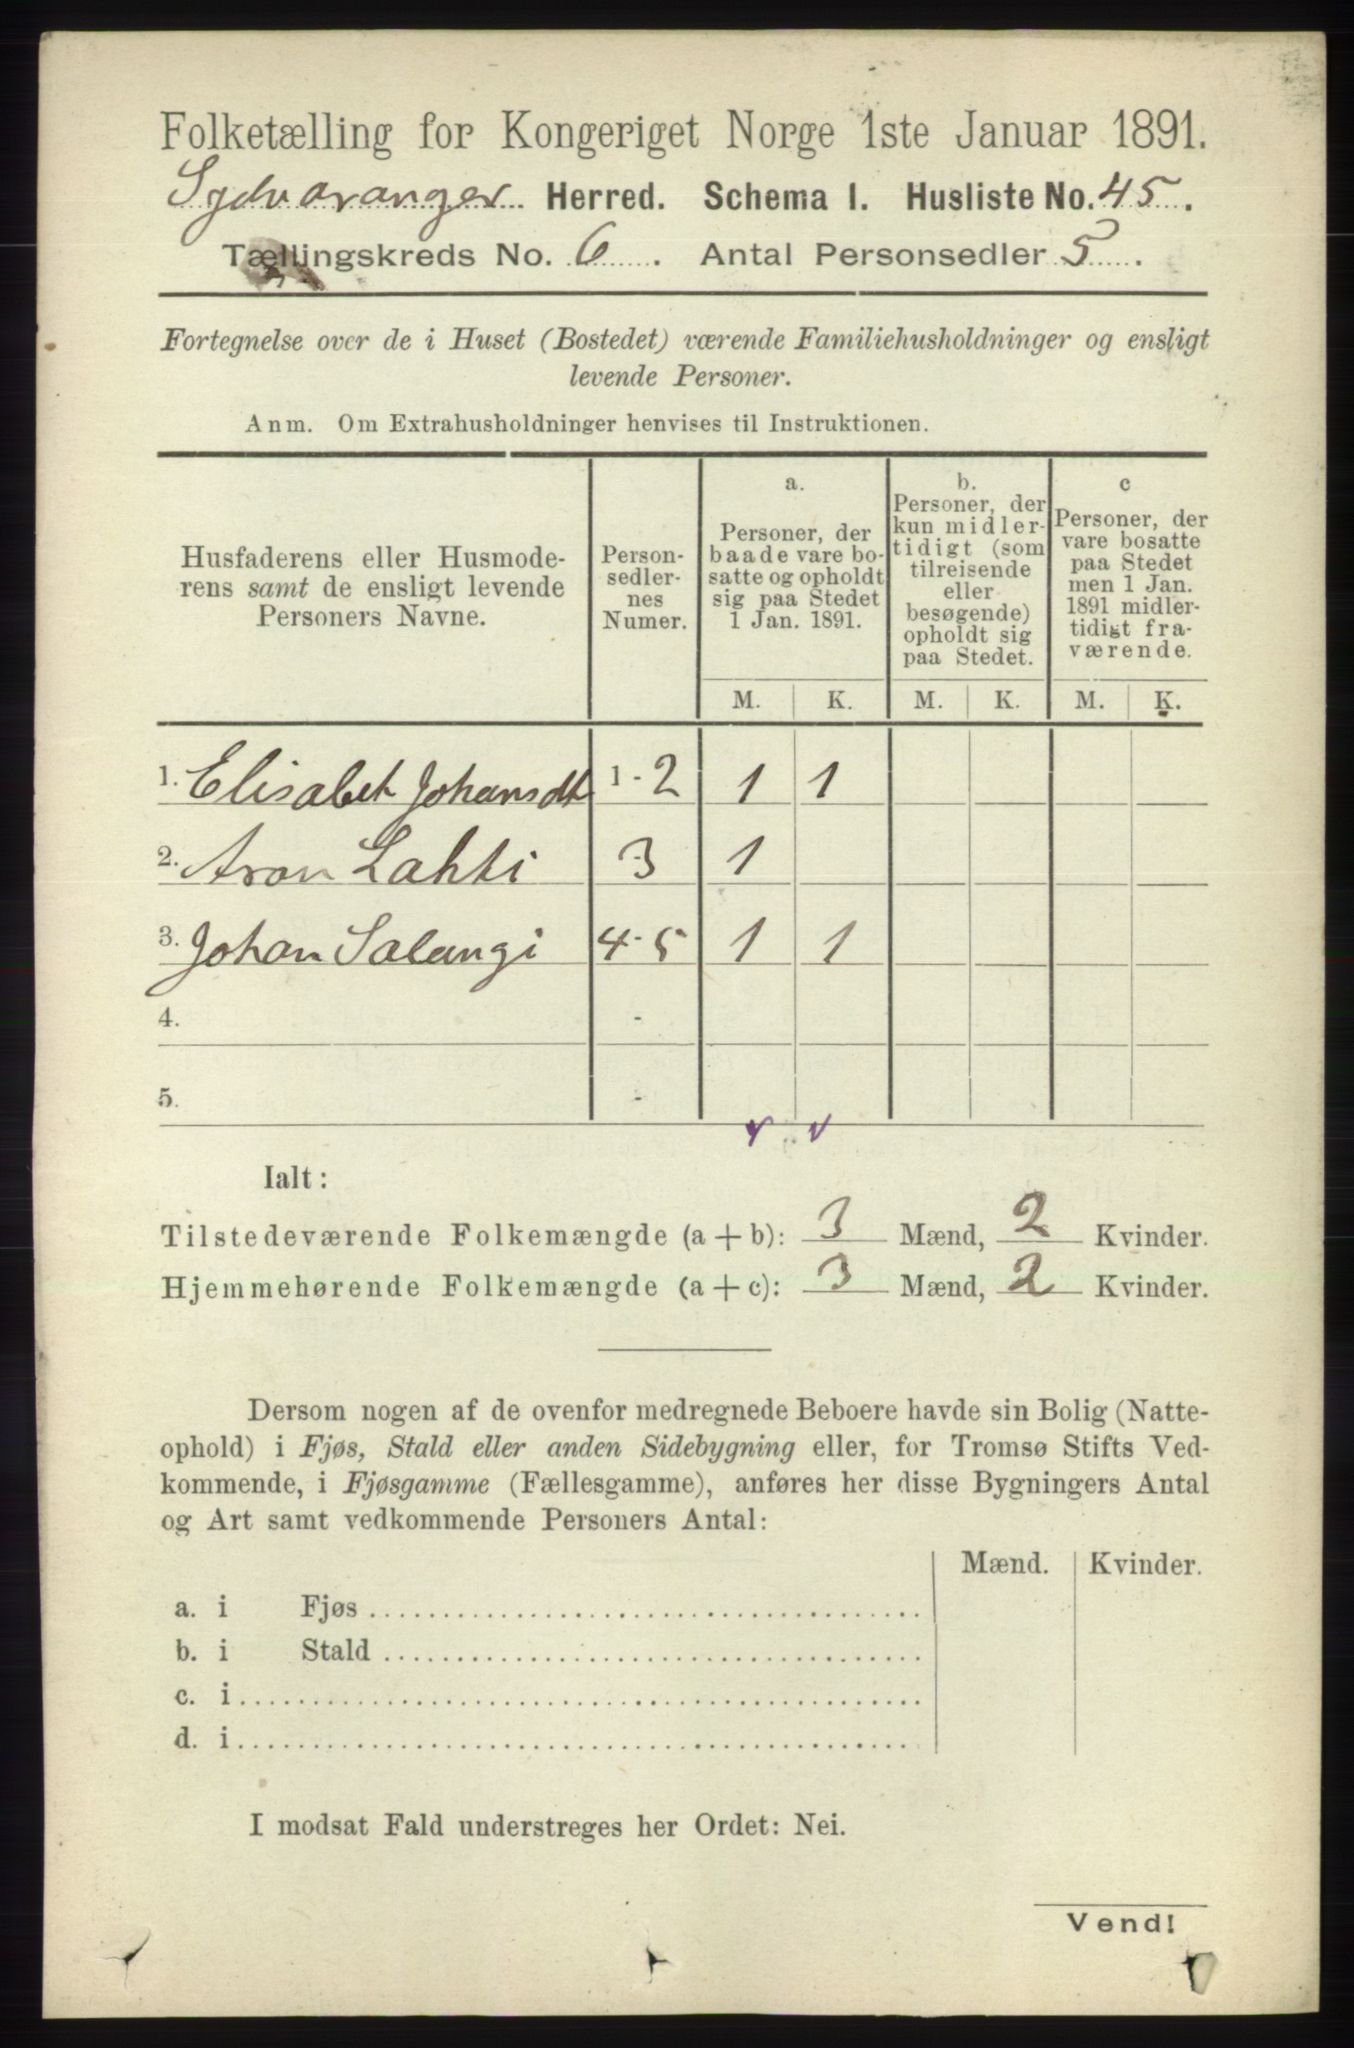 Folketælling for Kongeriget Norge 1ste Januar 1891.
Sydvaranger Herred. Schema I. Husliste No. 45.
Tællingskreds No. 6. Antal Personsedler 5.
Fortegnelse over de i Huset (Bostedet) værende Familiehusholdninger og ensligt
levende Personer.
Anm. Om Extrahusholdninger henvises til Instruktionen.
Husfaderens eller Husmode-
rens samt de ensligt levende
Personers Navne.
Person-
sedler-
nes
Numer.
a.
Personer, der
baade vare bo-
satte og opholdt
sig paa Stedet
1 Jan. 1891.
b.
Personer, der
kun midler-
tidigt (som
tilreisende
eller
besøgende)
opholdt sig
paa Stedet.
c
Personer, der
vare bosatte
paa Stedet
men 1 Jan.
1891 midler-
tidigt fra-
værende.
M. K. M. K. M. K.
1. Elisabet Johansdt 1 - 2 1 1
2. Aron Lahti 3 1
3. Johan Salangi 4 - 5 1 1
4. -
5. -
Ialt:
Tilstedeværende Folkemængde (a + b): 3 Mænd, 2 Kvinder.
Hjemmehørende Folkemængde (a + c): 3 Mænd, 2 Kvinder.
Dersom nogen af de ovenfor medregnede Beboere havde sin Bolig (Natte-
ophold) i Fjøs, Stald eller anden Sidebygning eller, for Tromsø Stifts Ved-
kommende, i Fjøsgamme (Fællesgamme), anføres her disse Bygningers Antal
og Art samt vedkommende Personers Antal:
Mænd. Kvinder.
a. i Fjøs
b. i Stald
c. i
d. i
I modsat Fald understreges her Ordet: Nei.
Vend!